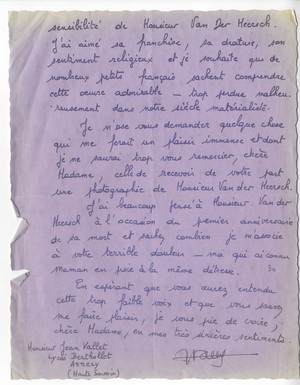 sensibilité de Monsieur Van Der Meersch.
J'ai aimé sa franchise, sa droiture, son
sentiment religieux et je souhaite que de
nombreux petits français sachent comprendre
cette oeuvre admirable — trop perdue malheu-
reusement dans notre siècle matérialiste.
Je n'ose vous demander quelque chose
qui me ferait un plaisir immense et dont
je ne saurai trop vous remercier, chère
Madame, celle de recevoir de votre part
une photographie de Monsieur Van der Meersch.
J'ai beaucoup pensé à Monsieur Van der
Meersch à l'occasion du premier anniversaire
de sa mort et sachez combien je m'associe
à votre terrible douleur — moi qui ai connu
maman en proie à la même détresse.
En espérant que vous aurez entendu
cette trop faible voix et que vous saurez
me faire plaisir, je vous prie de croire,
chère Madame, en mes très sincères sentiments.
Monsieur Jean Vallet
Lycée Berthollet
Annecy
(Haute Savoie)
JVallet